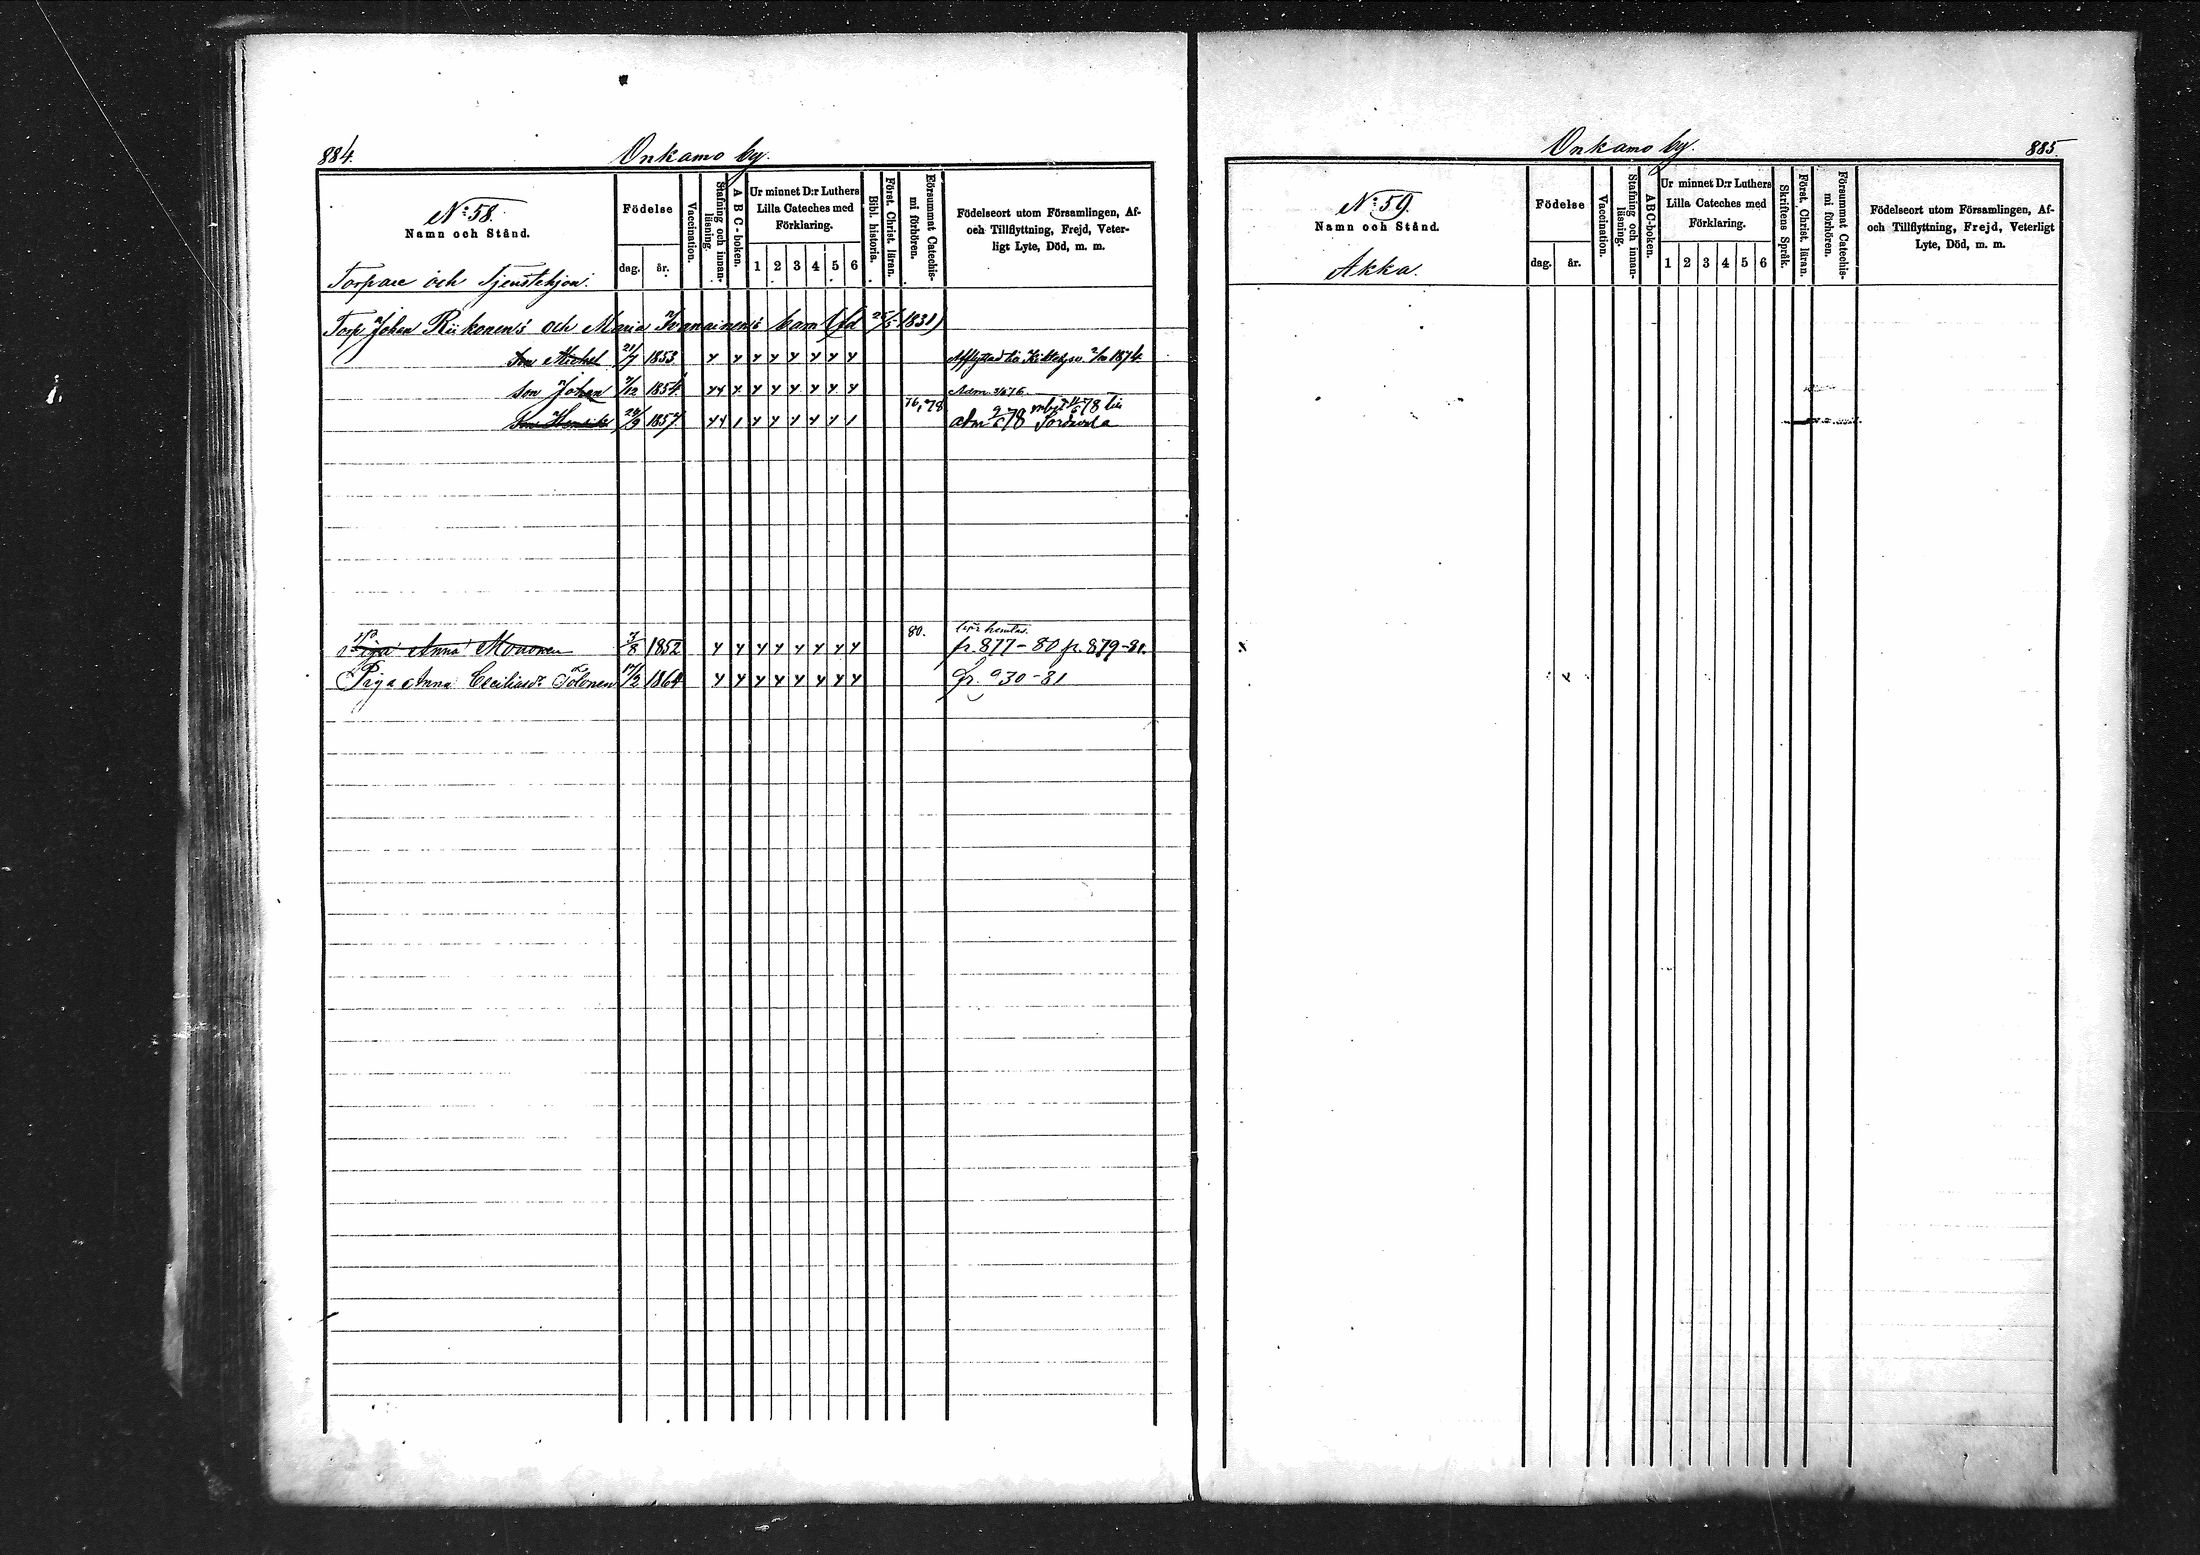 884.
Onkamo by.
No: 58.
Namn och Stånd.
Födelse
dag.
år.
Vaccination.
Stafning och innan-
läsning.
A B C-boken.
Ur minnet D:r Luthers
Lilla Cateches med
Förklaring.
1 2 3 4 5 6
Bibl. historia.
Först. Christ. läran.
Försummat Catechis-
mi förhören.
Födelseort utom Församlingen, Af-
och Tillflyttning, Frejd, Veter-
ligt Lyte, Död, m. m.
Torpare och Tjenstehjon.
Torp. Johan Riikonens och Maria barn (fd 25/5 1831)
Son Michel 21/7 1853 Afflyttad till 1874.
Son Johan 7/12 1854
76, 78
Son Henrik 24/9 1857 adm. 9/6 78 Sordavala
80.
Piga Anna Mononen 3/8 1852 fr. 877-80 fr. 879-81.
Piga Anna Ceciliasdr Tolonen 17/2 1864 fr. 930-81
Onkamo by.
885.
No: 59.
Namn och Stånd.
Akka.
Födelse
dag.
år.
Vaccination.
Stafning och innan-
läsning.
ABC-boken.
Ur minnet D:r Luthers
Lilla Cateches med
Förklaring.
1 2 3 4 5 6
Skriftens Språk.
Först. Christ. läran.
Försummat Catechis-
mi förhören.
Födelseort utom Församlingen, Af-
och Tillflyttning, Frejd, Veterligt
Lyte, Död, m. m.